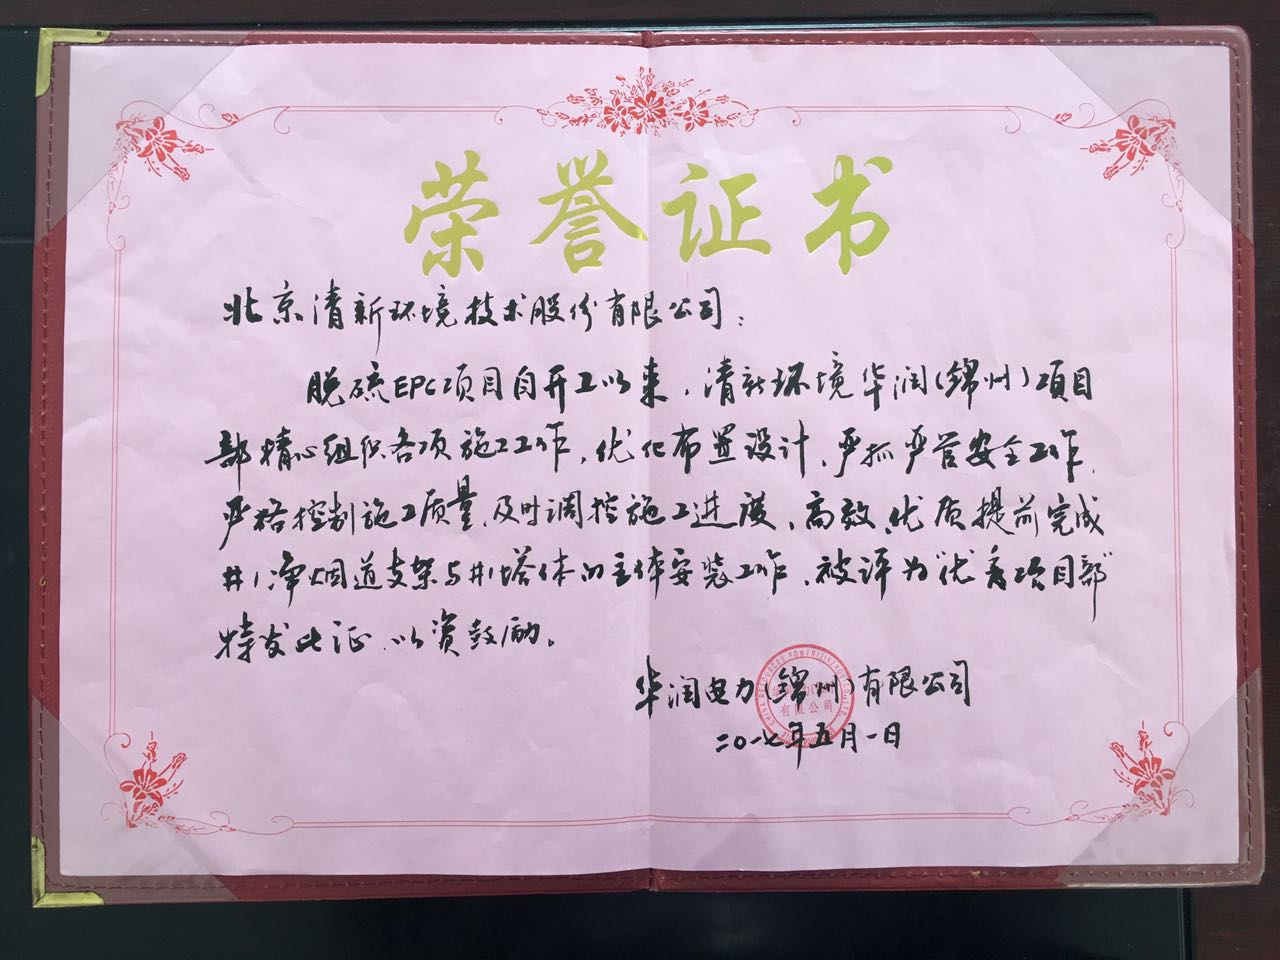 荣誉证书
北京清新环境技术股份有限公司：
脱硫EPC项目自开工以来，清新环境华润(锦州)项目
部精心组织各项施工工作，优化布置设计、严抓严管安全工作、
严格控制施工质量、及时调控施工进度、高效、优质提前完成
#1净烟道支架与#1塔体的主体安装工作，被评为“优秀项目部”
特发此证、以资鼓励。
华润电力(锦州)有限公司
有限公司
二〇一七年五月一日